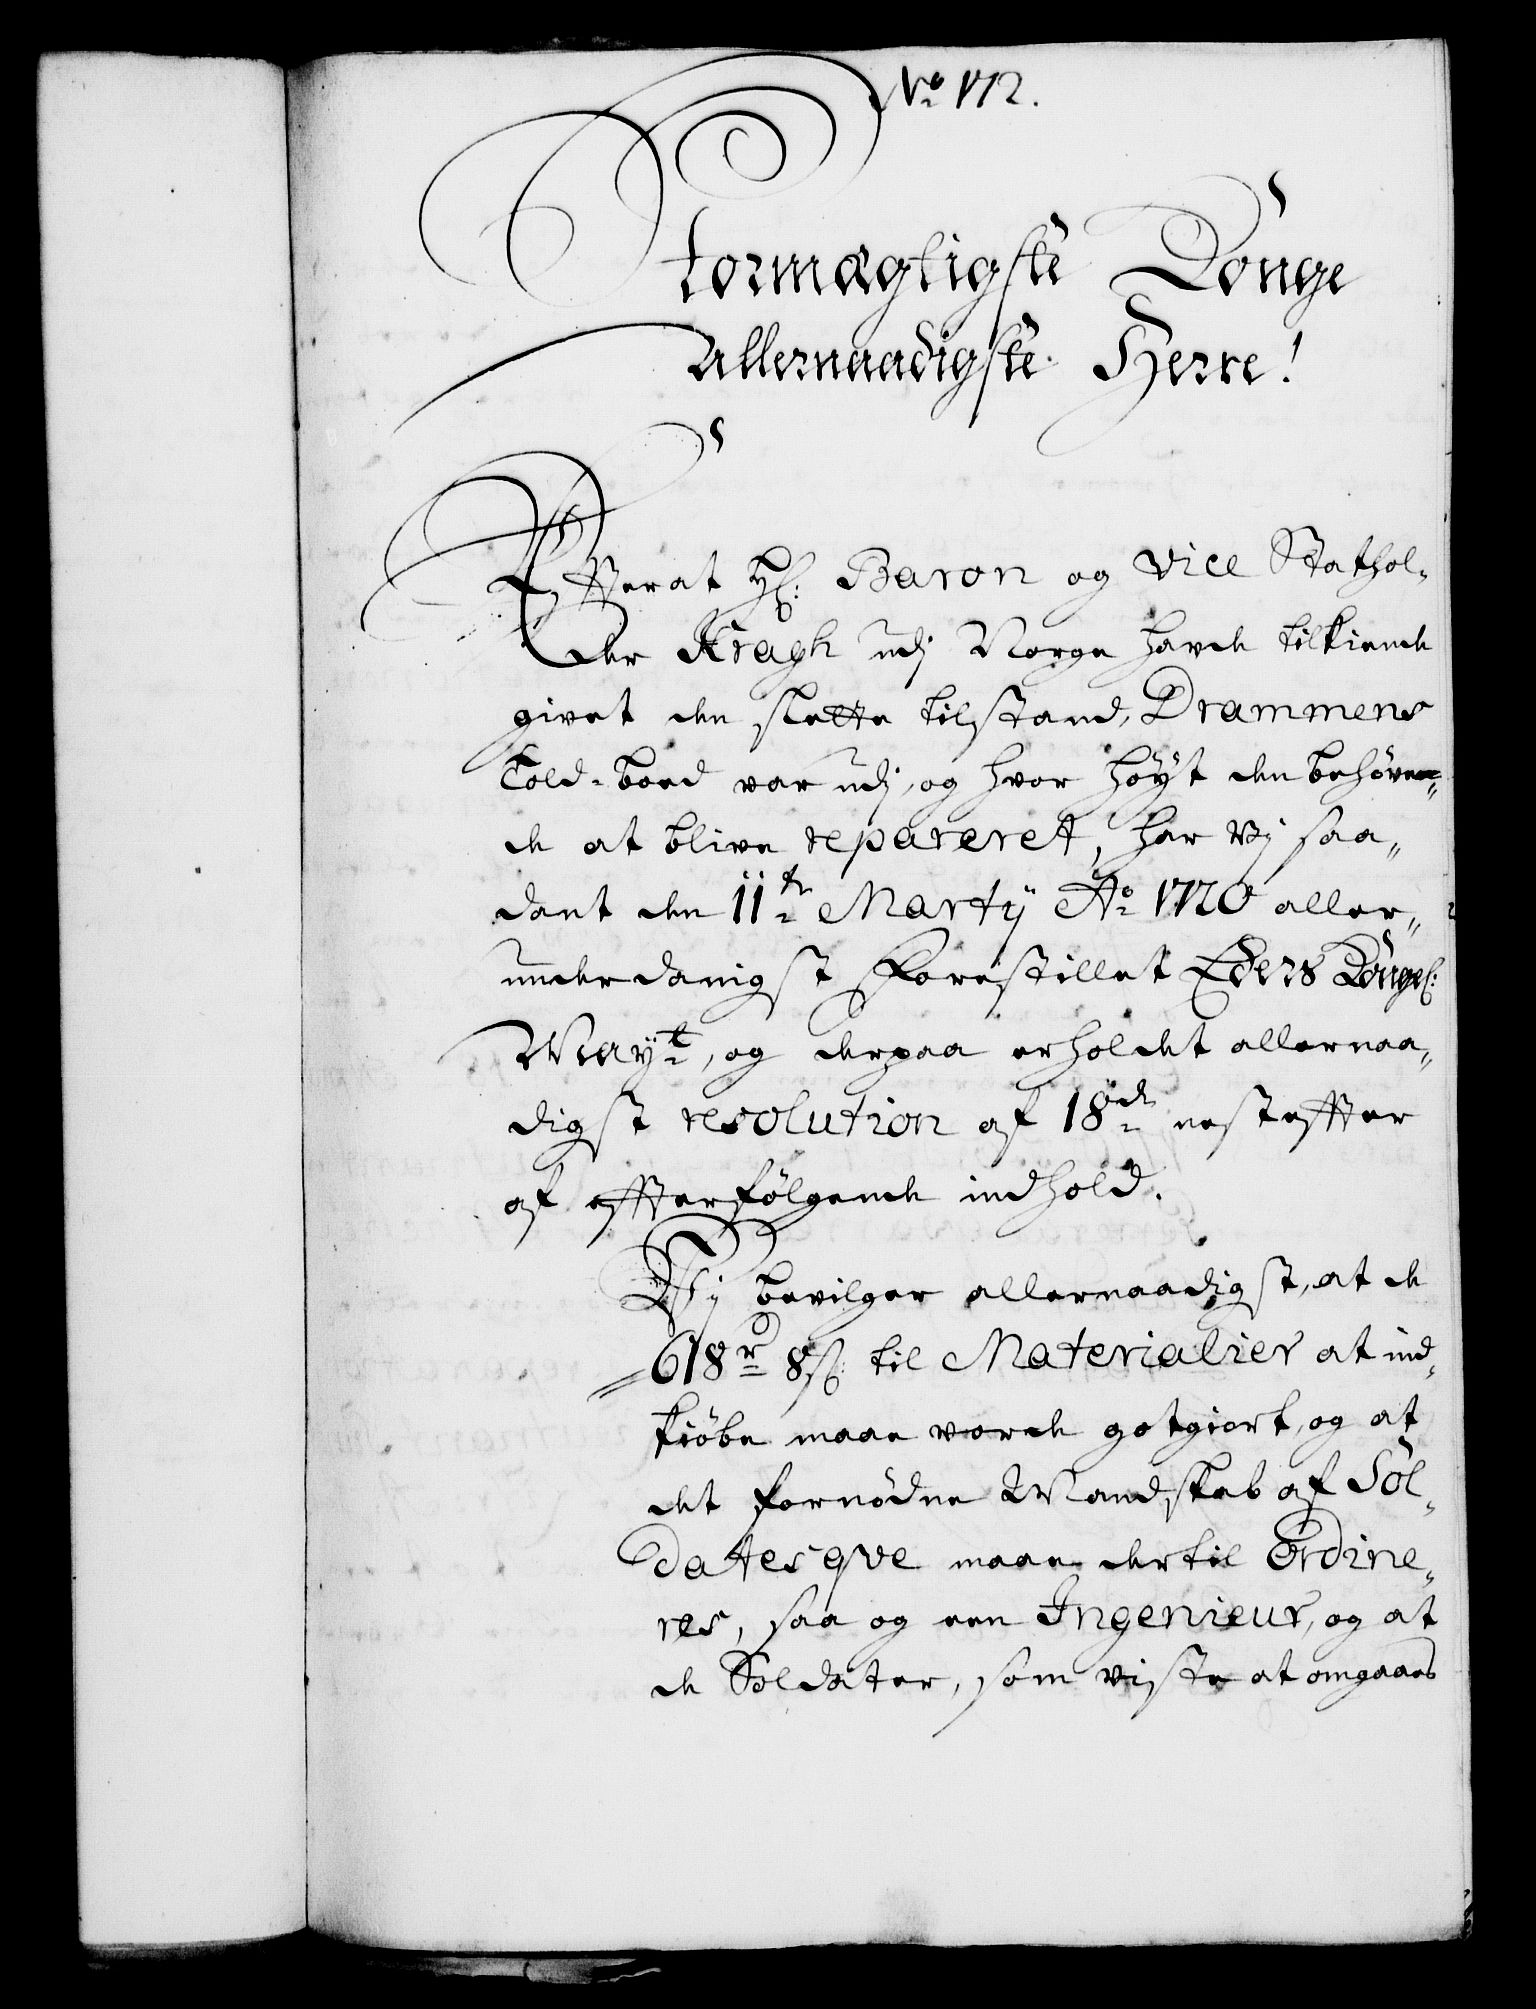 No 172.
Stormægtigste Konge
Allernaadigste Herre!
Efterat Hr: Baron og Vice Stathol-
der Kragh udj Norge hafde tilkiende
givet den slette tilstand, Drammens
Told-boed var udj, og hvor høyt den behøve-
de at blive repareret, har Vj saa-
dant den 11te Martij Ao 1720 aller-
underdanigst Forestillet Eders Kongel:
Mayt, og derpaa erholdet allernaa-
digst resolution af 18de nestefter
af efterfølgende indhold.
Vj bevilger allernaadigst, at de
618 rd 8 s: til Materialier at ind-
kiøbe maae vorde gotgiort, og at
det fornødne Mandskab af Sol-
datesqve maae dertil Ordine-
res, saa og een Ingenieur, og at
de Soldater, som viste at omgaaes